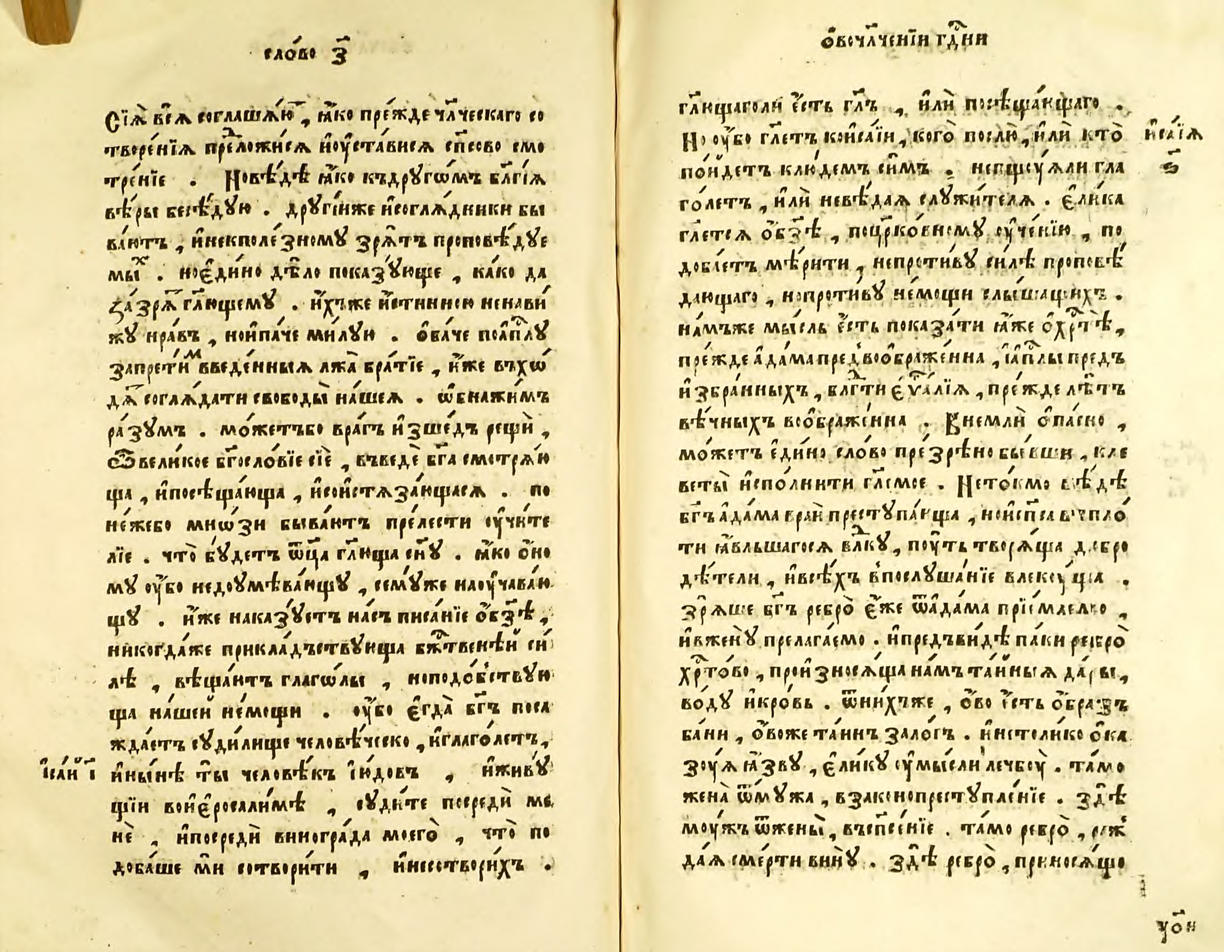 сло́во з҃
Сїѧ̀ всѧ̀ соглаша́ю, ꙗ҆́ко пре́жде чл҃ческаго со
творе́нїѧ преложи́сѧ и҆оу҆ста́висѧ спⷭ҇ово смо
тре́нїе . Новѣ́дѣ ꙗ҆́ко къдруги́мъ бл҃гїѧ
вѣ́ры бесѣ́дую . дрꙋгі́иже и҆соглѧ́дники бы
ва́ютъ , и҆некполе́зному зрѧ́тъ проповѣ́дуе
мыⷯ . ноє҆ди́но дѣ́ло показ́ующе , ка́ко да
заꙁрѧ́тъ гл҃ющему . и҆́хъже и҆́стинною ненави́
жу нра́въ , нои҆па́че ми́лую . ѻ҆ба́че поа҆пⷭ҇лу
запрети́мⷨ введе́нныѧ лжа̀ бра́тїе , и҆̀же въхѡ́
дѧⷮ соглѧ́дати свободы̀ на́шеѧ . ѡ҆бнажи́мъ
ра́зумъ . мо́жетъбо вра́гъ и҆зше́дъ рещѝ ,
ѿвели́кое бг҃осло́вїе сїѐ , въведѐ бг҃а смотрѧ́ю
ща , и҆посѣща́юща , и҆сои҆стѧза́ющасѧ . по
не́жебо мно́зи быва́ютъ пре́лести оу҆чи́те
лїе . что̀ бу́детъ ѻ҆ц҃а гл҃юща сн҃у . ꙗ҆́ко ѻ҆но
му оу҆́бо недоумѣва́ющꙋ , сему́же наоу҆чава́ю
щꙋ . и҆́же наказ́уетъ на́съ писа́нїе ѻ҆бз҃ѣ ,
никогда́же прикла́дъствующа бж҃твенѣ́й си́
лѣ , вѣща́ютъ глаго́лы , ноподо́бствую
ща на́шей не́мощи . оу҆́бо є҆гда̀ бг҃ъ поса
жда́етъ суди́лище человѣ́ческо , и҆глаго́летъ ,
и҆ны́нѣ ты̀ человѣ́къ і҆ю́довъ , и҆живꙋ́
щїи вои҆єроса́лимѣ , суди́те посредѝ ме
нѐ , и҆посредѝ виногра́да моегѡ̀ , что̀ по
доба́ше мѝ сотвори́ти , и҆несотвори́хъ .
і҆са́їй і҃
ѻ҆вочл҃че́нїи гдⷭ҇ни
гл҃ющаголи є҆́сть гл҃ъ , и҆лѝ посѣща́ющаго .
Но оу҆́бо гл҃етъ кои҆са́їи , кого̀ послю̀ , и҆лѝ кто̀
по́йдетъ клю́демъ си́мъ . непщꙋ́ѧли гла
го́летъ , и҆лѝ невѣ́даѧ слꙋжи́телѧ . є҆ли́ка
гл҃етсѧ ѻ҆бз҃ѣ , поцр҃ко́вному оу҆че́нїю , по
доба́етъ мѣ́рити , непроти́ву си́лѣ проповѣ́
дающаго , нопроти́ву не́мощи слы́шащихъ .
на́мъже мы́сль є҆́сть показа́ти ꙗ҆́же ѻ҆хрⷭ҇тѣ̀ ,
пре́жде а҆да́ма предвоѡбра́женна , і҆а҆пⷭ҇лы предъ
и҆збра́нныхъ , влⷢ҇ти є҆ѵⷢ҇а́лїѧ , пре́жде лѣ́тъ
вѣ́чныхъ воѡбра́женна . Внемлѝ ѻ҆па́сно ,
мо́жетъ є҆ди́но сло́во презрѣ́но бы́вши , кле
веты̀ и҆спо́лнити гл҃емое . Нето́кмо вѣ́дѣ
бг҃ъ а҆да́ма враѝ преступа́юща , нои҆спⷭ҇а въпло́
ти ꙗ҆́вльшагосѧ влⷣку , пꙋ́ть творѧ́ща добро
дѣ́тели , и҆всѣ́хъ впослуша́нїе влекꙋ́ща .
зрѧ́ше бг҃ъ ребро̀ є҆́же ѿа҆да́ма прїе́млемо ,
и҆вжену̀ прелага́емо . и҆предъви́дѣ па́ки ребро̀
хрⷭ҇то́во , прои҆зносѧ́ща на́мъ та́йныѧ да́ры ,
во́ду и҆кро́вь . ѿни́хъже , ѻ҆́во є҆́сть ѻ҆́бразъ
ба́ни , ѻ҆́воже та́инъ зало́гъ . и҆нето́лико ѻ҆ка
зꙋ́ѧ ꙗ҆́зву , є҆ли́ку оу҆мы́сли лечбꙋ̀ . та́мо
жена̀ ѿмꙋ́жа , взаконопреступле́нїе . здѣ̀
моу́жъ ѿжены̀ , въспⷭ҇е́нїе . та́мо ребро̀ , раж
да́ѧ сме́рти винꙋ̀ . здѣ̀ ребро̀ , приносѧ́що
и҆са́їѧ
ѕ҃